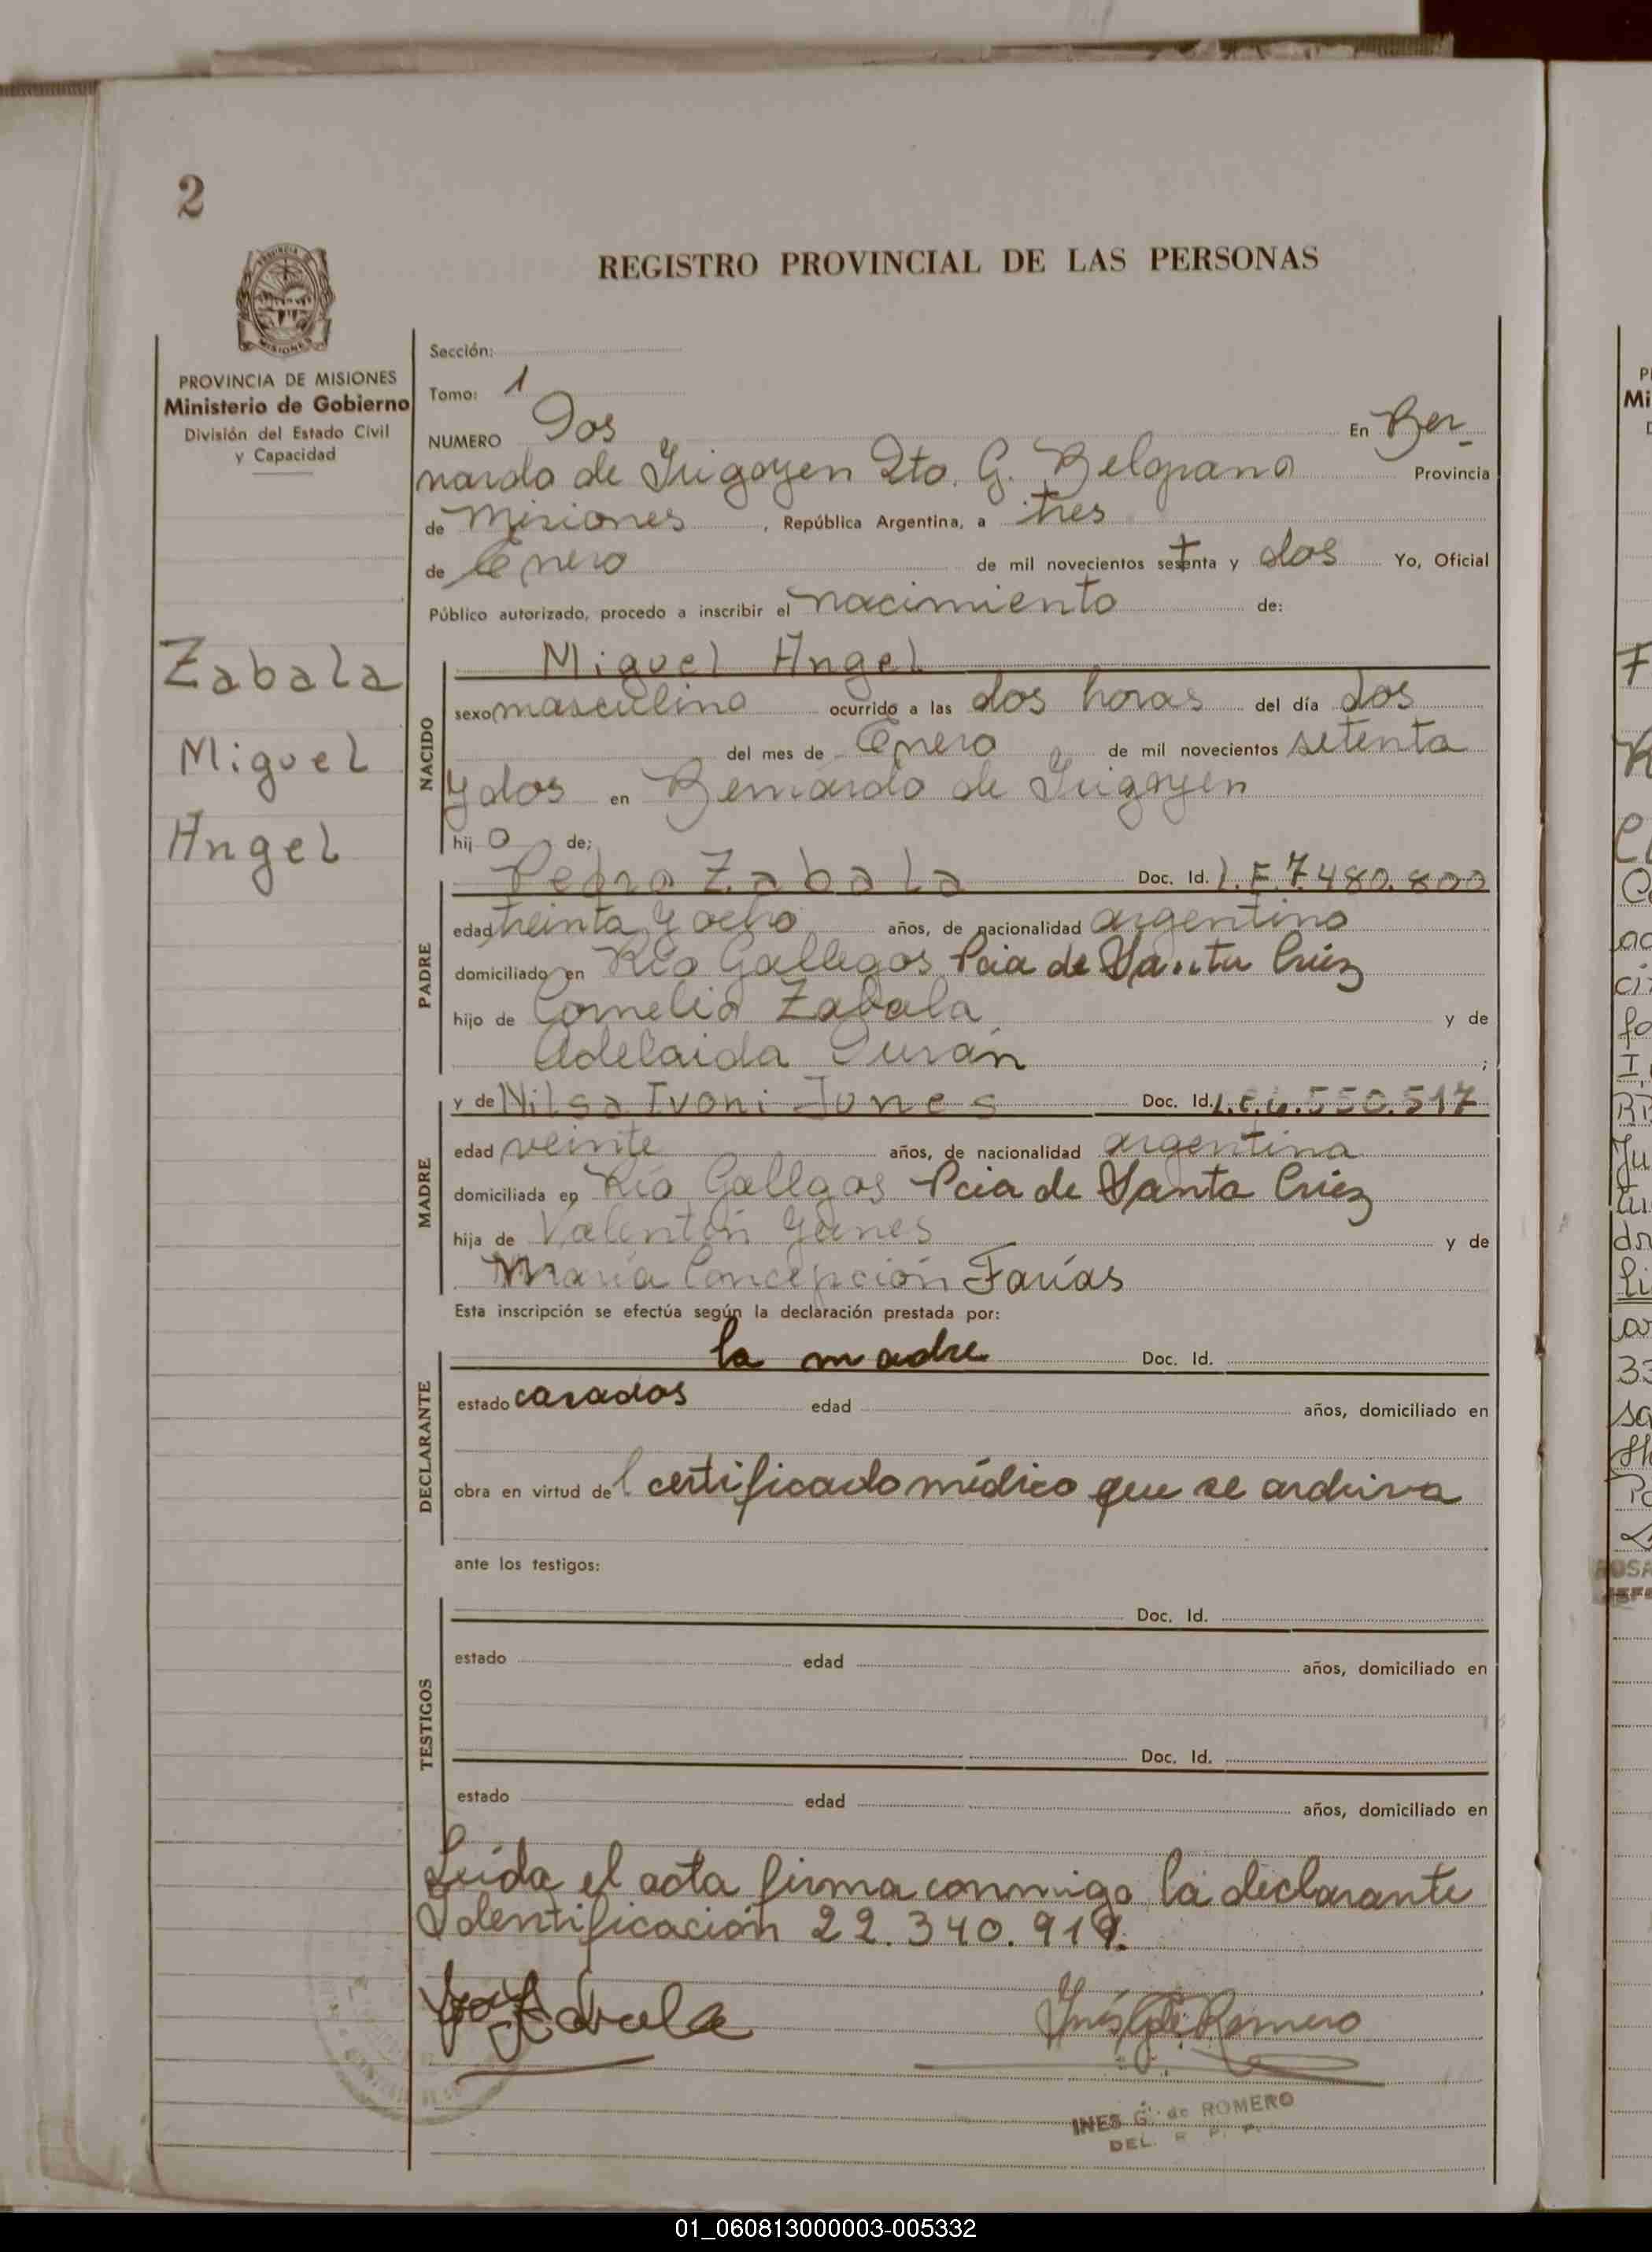 2
REGISTRO PROVINCIAL DE LAS PERSONAS
PROVINCIA DE MISIONES
Ministerio de Gobierno
División del Estado Civil
y Capacidad
Zabala
Miguel
Angel
Sección:
Tomo: 1
NUMERO Dos En Ber-
nardo de Irigoyen Dto. G. Belgrano Provincia
de Misiones, República Argentina, a tres
de Enero de mil novecientos setenta y dos Yo, Oficial
Público autorizado, procedo a inscribir el nacimiento de:
NACIDO
Miguel Angel
sexo masculino ocurrido a las dos horas del día dos
del mes de Enero de mil novecientos setenta
y dos en Bernardo de Irigoyen
hijo de;
PADRE
Pedro Zabala Doc. Id. L.E.7.480.800
edad treinta y ocho años, de nacionalidad argentino
domiciliado en Río Gallegos Pcia de Santa Cruz
hijo de Cornelio Zabala y de
Adelaida Durán ;
MADRE
y de Nilsa Ivoni Junes Doc. Id. 550.517
edad veinte años, de nacionalidad argentina
domiciliada en Río Gallegos Pcia de Santa Cruz
hija de Valentín y de
María Concepción Farías
Esta inscripción se efectúa según la declaración prestada por:
DECLARANTE
la madre Doc. Id.
estado casados edad años, domiciliado en
obra en virtud del certificado médico que se archiva
ante los testigos:
TESTIGOS
Doc. Id.
estado edad años, domiciliado en
Doc. Id.
estado edad años, domiciliado en
Leída el acta firma conmigo la declarante
Identificación 22.340.919.
Inés G. de Romero
INES G. de ROMERO
DEL. R. P. P.
01_060813000003-005332